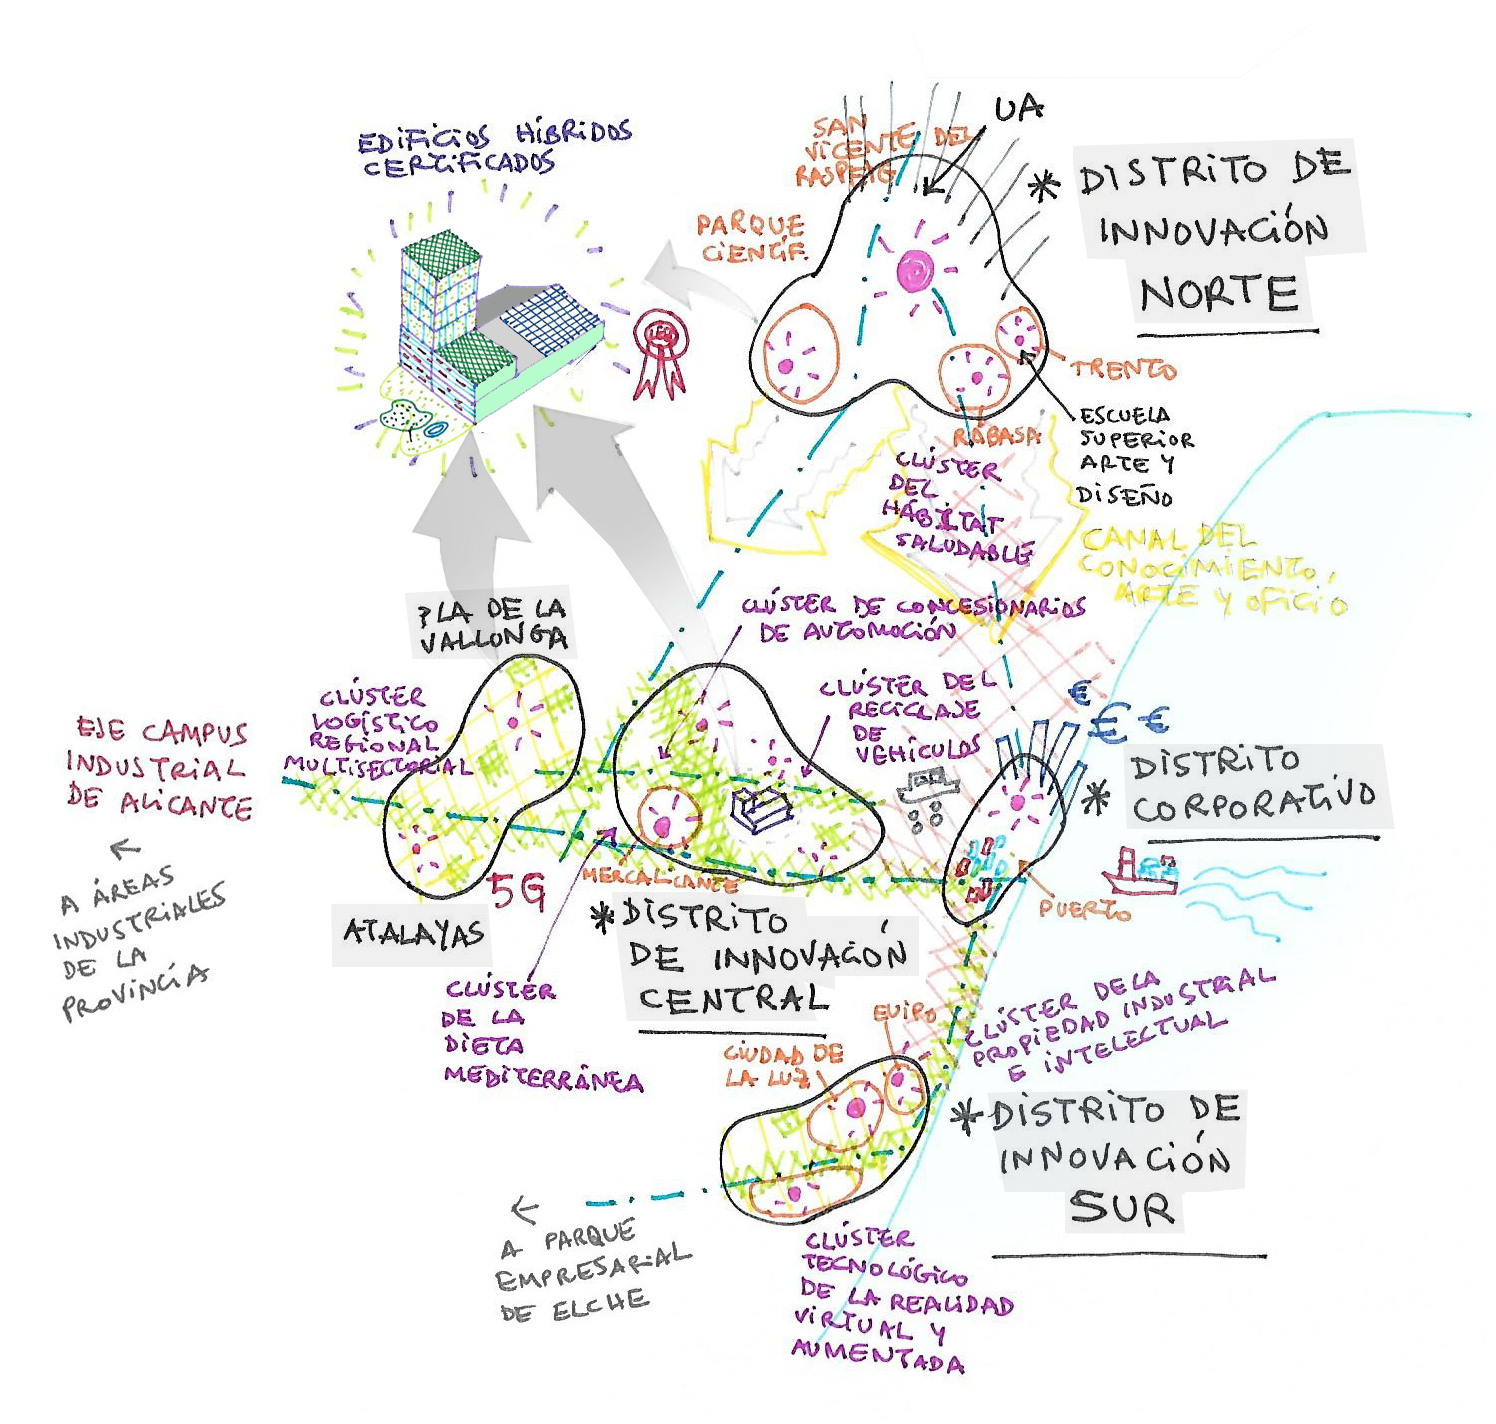 UA
SAN
VICENTE DEL
RASPEIG
EDIFICIOS HÍBRIDOS
CERTIFICADOS
* DISTRITO DE
INNOVACIÓN
NORTE
PARQUE
CIENTÍF.
LEED
TRENTO
RABASA
ESCUELA
SUPERIOR
ARTE Y
DISEÑO
CLÚSTER
DEL
HÁBITAT
SALUDABLE
CANAL DEL
CONOCIMIENTO,
ARTE Y OFICIO
PLA DE LA
VALLONGA
CLÚSTER DE CONCESIONARIOS
DE AUTOMOCIÓN
CLÚSTER
LOGÍSTICO
REGIONAL
MULTISECTORIAL
CLÚSTER DEL
RECICLAJE
DE
VEHÍCULOS
€
€ €
EJE CAMPUS
INDUSTRIAL
DE ALICANTE
* DISTRITO
CORPORATIVO
← A ÁREAS
INDUSTRIALES
DE LA
PROVINCIA
5G
MERCALICANTE
PUERTO
ATALAYAS
* DISTRITO
DE INNOVACIÓN
CENTRAL
CLÚSTER
DE LA
DIETA
MEDITERRÁNEA
EUIPO
CIUDAD DE
LA LUZ
CLÚSTER DE LA
PROPIEDAD INDUSTRIAL
E INTELECTUAL
* DISTRITO DE
INNOVACIÓN
SUR
← A PARQUE
EMPRESARIAL
DE ELCHE
CLÚSTER
TECNOLÓGICO
DE LA REALIDAD
VIRTUAL Y
AUMENTADA